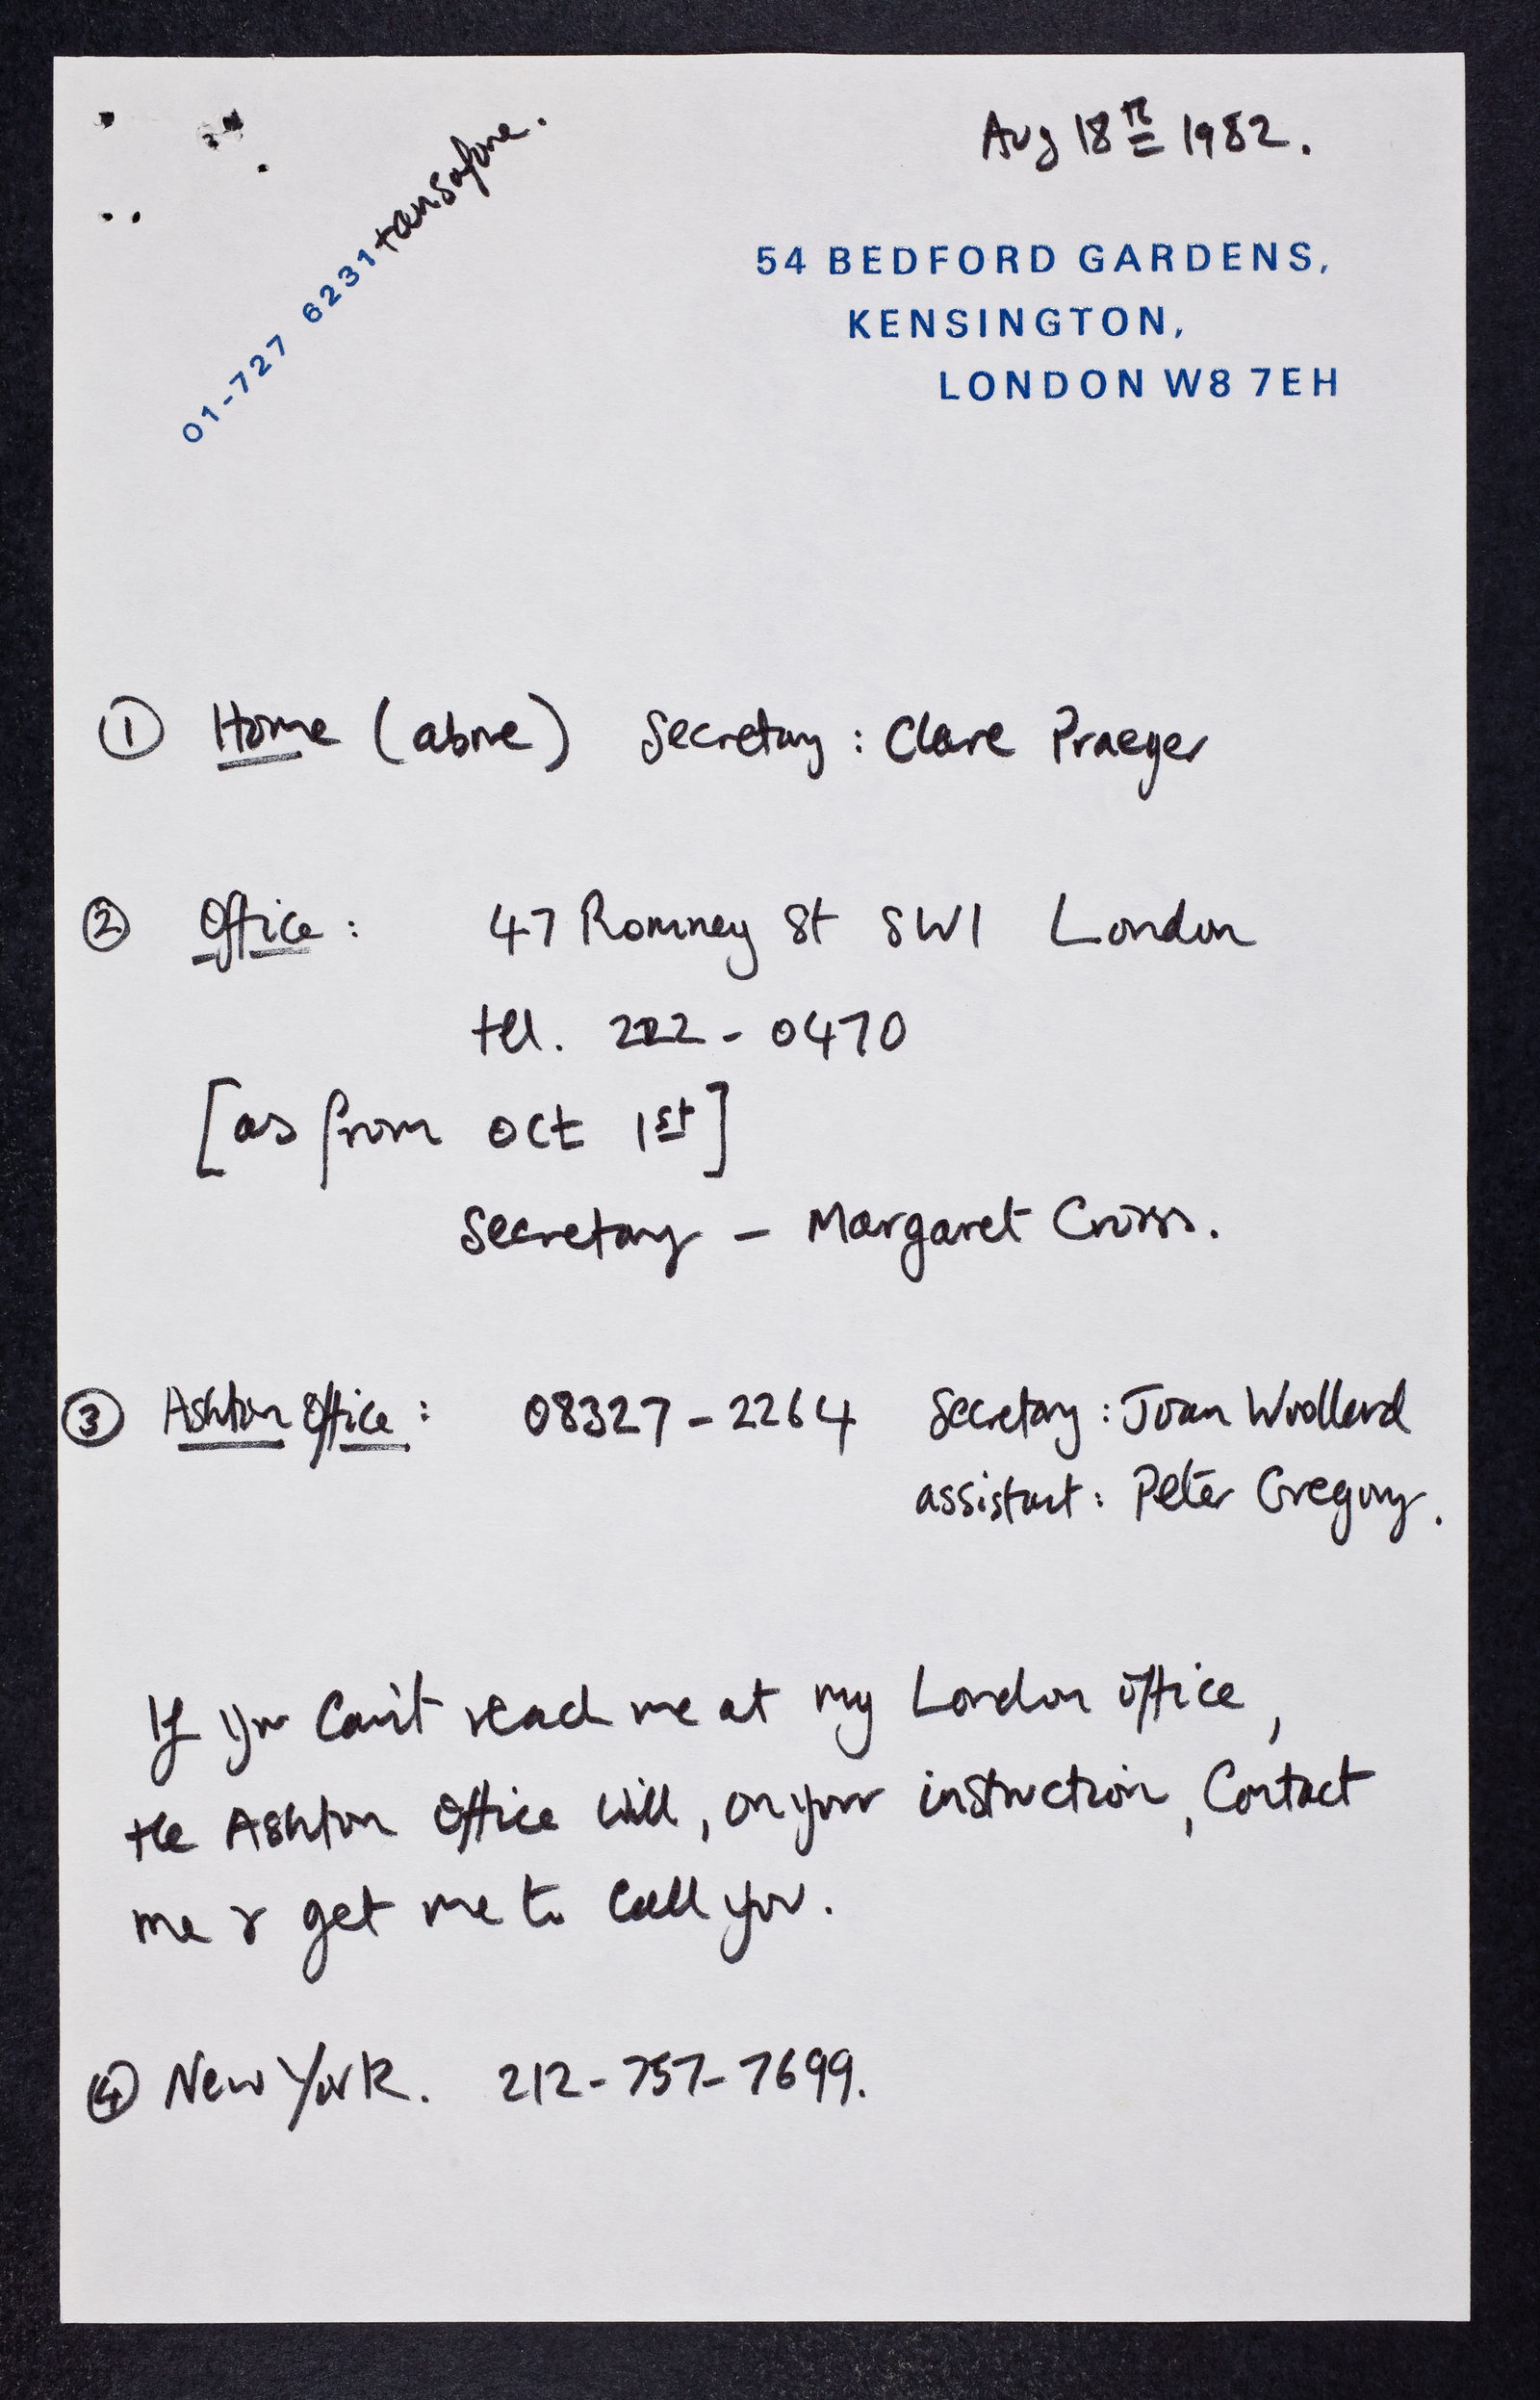 Aug 18th 1982.
01-727 6231 + ansafone.
54 BEDFORD GARDENS,
KENSINGTON,
LONDON W8 7EH
① Home (above) Secretary : Clare Praeger
② Office : 47 Romney St SW1 London
tel. 222-0470
[as from Oct 1st]
Secretary – Margaret Cross.
③ Ashton Office : 08327-2264 Secretary : Joan Woollard
assistant : Peter Gregory.
If you can't reach me at my London office,
the Ashton Office will, on your instruction, contact
me & get me to call you.
④ New York. 212-757-7699.